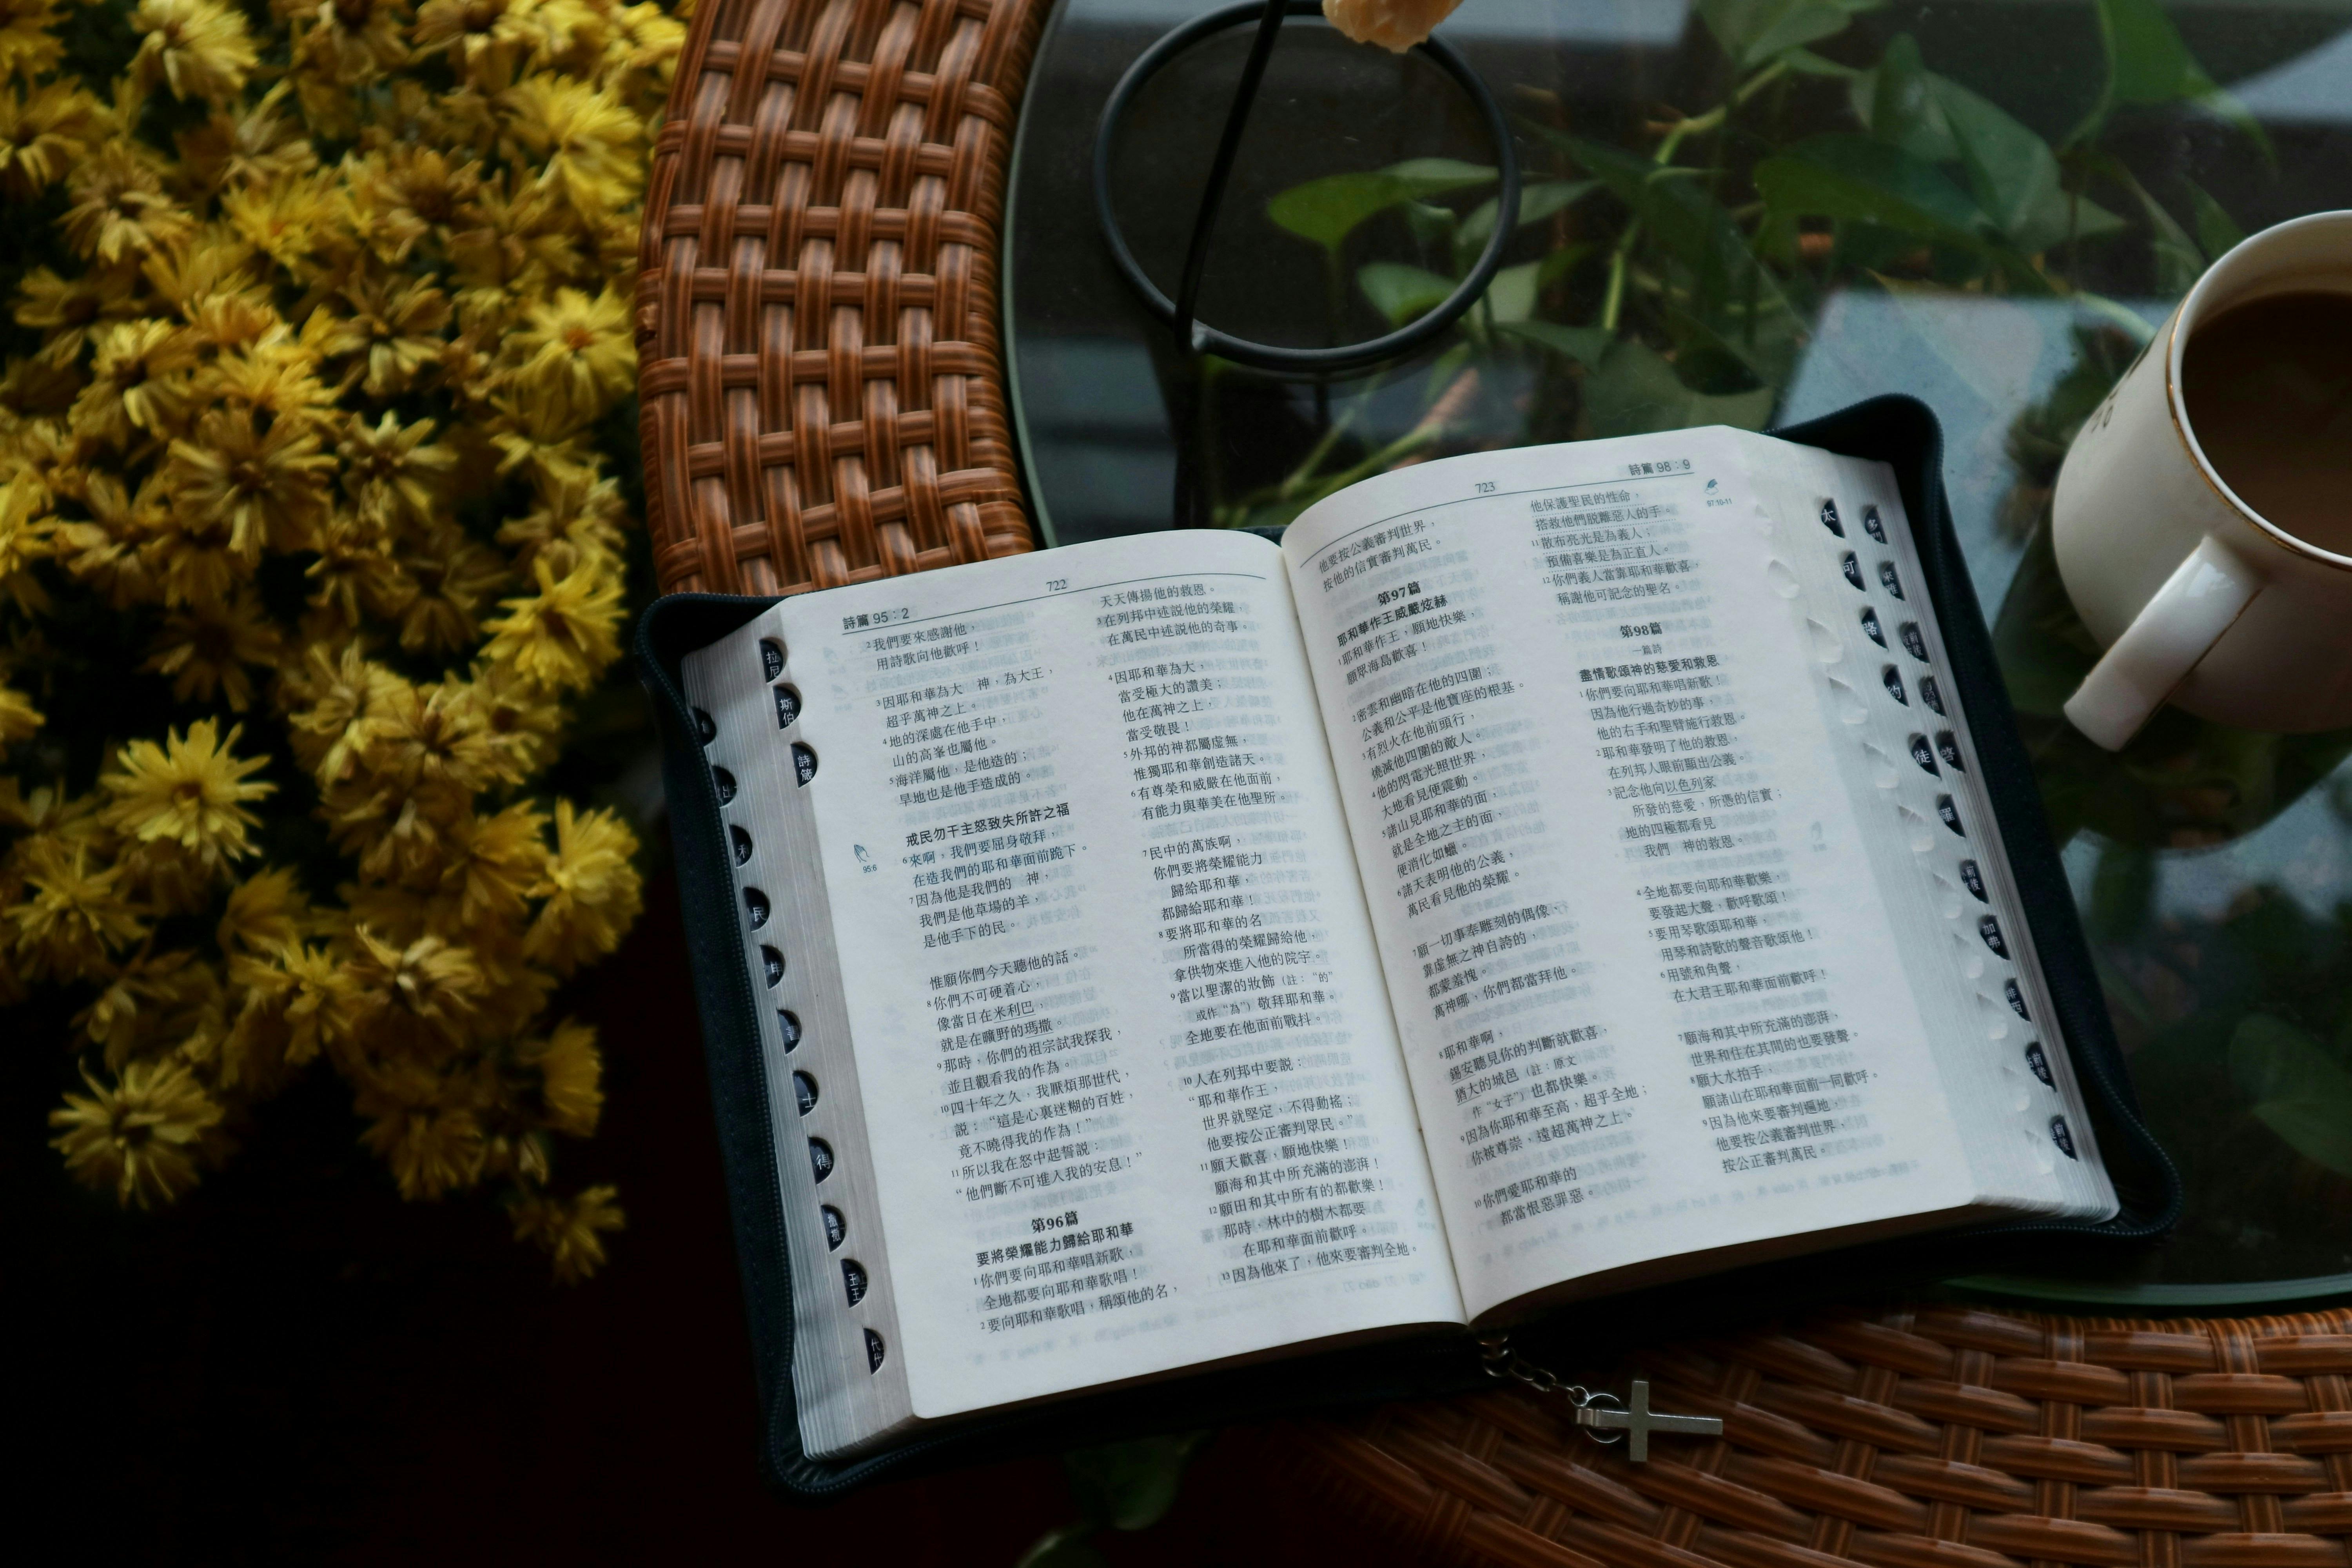 詩篇 95：2
722
²我們要來感謝他，
用詩歌向他歡呼！
³因耶和華為大　神，為大王，
超乎萬神之上。
⁴地的深處在他手中，
山的高峯也屬他。
⁵海洋屬他，是他造的；
旱地也是他手造成的。
戒民勿干主怒致失所許之福
⁶來啊，我們要屈身敬拜，
在造我們的耶和華面前跪下。
⁷因為他是我們的　神，
我們是他草場的羊，
是他手下的民。
惟願你們今天聽他的話。
⁸你們不可硬着心，
像當日在米利巴，
就是在曠野的瑪撒。
⁹那時，你們的祖宗試我探我，
並且觀看我的作為。
¹⁰四十年之久，我厭煩那世代，
説：“這是心裏迷糊的百姓，
竟不曉得我的作為！”
¹¹所以我在怒中起誓説：
“他們斷不可進入我的安息！”
第96篇
要將榮耀能力歸給耶和華
¹你們要向耶和華唱新歌，
全地都要向耶和華歌唱！
²要向耶和華歌唱，稱頌他的名，
天天傳揚他的救恩。
³在列邦中述説他的榮耀，
在萬民中述説他的奇事。
⁴因耶和華為大，
當受極大的讚美；
他在萬神之上，
當受敬畏！
⁵外邦的神都屬虛無，
惟獨耶和華創造諸天。
⁶有尊榮和威嚴在他面前，
有能力與華美在他聖所。
⁷民中的萬族啊，
你們要將榮耀能力
歸給耶和華，
都歸給耶和華！
⁸要將耶和華的名
所當得的榮耀歸給他，
拿供物來進入他的院宇。
⁹當以聖潔的妝飾（註：“的”
或作“為”）敬拜耶和華。
全地要在他面前戰抖。
¹⁰人在列邦中要説：
“耶和華作王，
世界就堅定，不得動搖；
他要按公正審判眾民。”
¹¹願天歡喜，願地快樂！
願海和其中所充滿的澎湃！
¹²願田和其中所有的都歡樂！
那時，林中的樹木都要
在耶和華面前歡呼。
¹³因為他來了，他來要審判全地。
95:6
723
詩篇 98：9
他要按公義審判世界，
按他的信實審判萬民。
第97篇
耶和華作王威嚴炫赫
¹耶和華作王，願地快樂，
願眾海島歡喜！
²密雲和幽暗在他的四圍；
公義和公平是他寶座的根基。
³有烈火在他前頭行，
燒滅他四圍的敵人。
⁴他的閃電光照世界，
大地看見便震動。
⁵諸山見耶和華的面，
就是全地之主的面，
便消化如蠟。
⁶諸天表明他的公義，
萬民看見他的榮耀。
⁷願一切事奉雕刻的偶像、
靠虛無之神自誇的，
都蒙羞愧。
萬神哪，你們都當拜他。
⁸耶和華啊，
錫安聽見你的判斷就歡喜，
猶大的城邑（註：原文
作“女子”）也都快樂。
⁹因為你耶和華至高，超乎全地；
你被尊崇，遠超萬神之上。
¹⁰你們愛耶和華的
都當恨惡罪惡。
他保護聖民的性命，
搭救他們脱離惡人的手。
¹¹散布亮光是為義人；
預備喜樂是為正直人。
¹²你們義人當靠耶和華歡喜，
稱謝他可記念的聖名。
第98篇
一篇詩
盡情歌頌神的慈愛和救恩
¹你們要向耶和華唱新歌！
因為他行過奇妙的事，
他的右手和聖臂施行救恩。
²耶和華發明了他的救恩，
在列邦人眼前顯出公義。
³記念他向以色列家
所發的慈愛，所憑的信實；
地的四極都看見
我們　神的救恩。
⁴全地都要向耶和華歡樂，
要發起大聲，歡呼歌頌！
⁵要用琴歌頌耶和華，
用琴和詩歌的聲音歌頌他！
⁶用號和角聲，
在大君王耶和華面前歡呼！
⁷願海和其中所充滿的澎湃，
世界和住在其間的也要發聲。
⁸願大水拍手，
願諸山在耶和華面前一同歡呼。
⁹因為他來要審判遍地，
他要按公義審判世界，
按公正審判萬民。
97:10-11
拉尼
斯伯
詩箴
利
民
申
書
士
得
太
可
路
約
徒
羅
加弗
來雅
啓